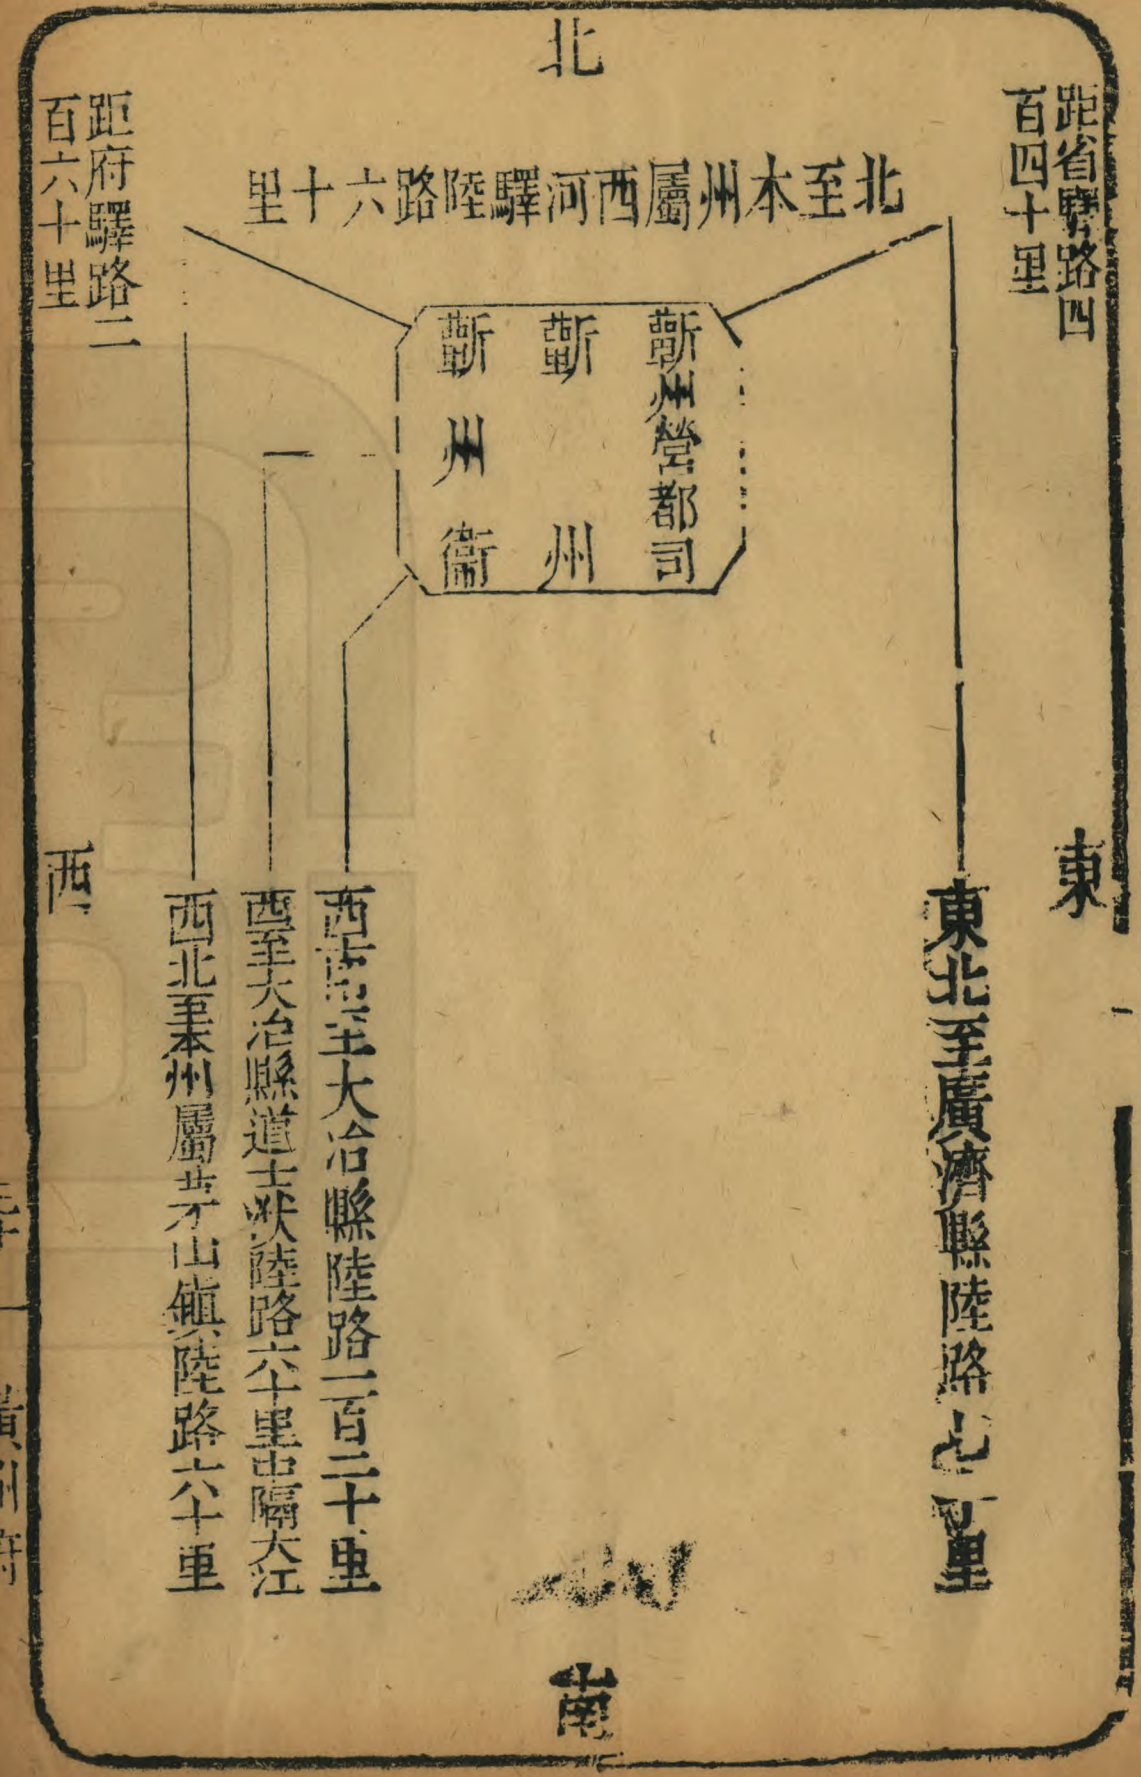 北
距省驛路四
百四十里
北至本州屬西河驛陸路六十里
距府驛路二
百六十里
蘄州營都司
蘄州
蘄州衞
東
東北至廣濟縣陸路七十里
西南至大冶縣陸路一百二十里
西至大冶縣道士洑陸路六十里中隔大江
西北至本州屬茅山鎮陸路六十里
西
南
黃州府